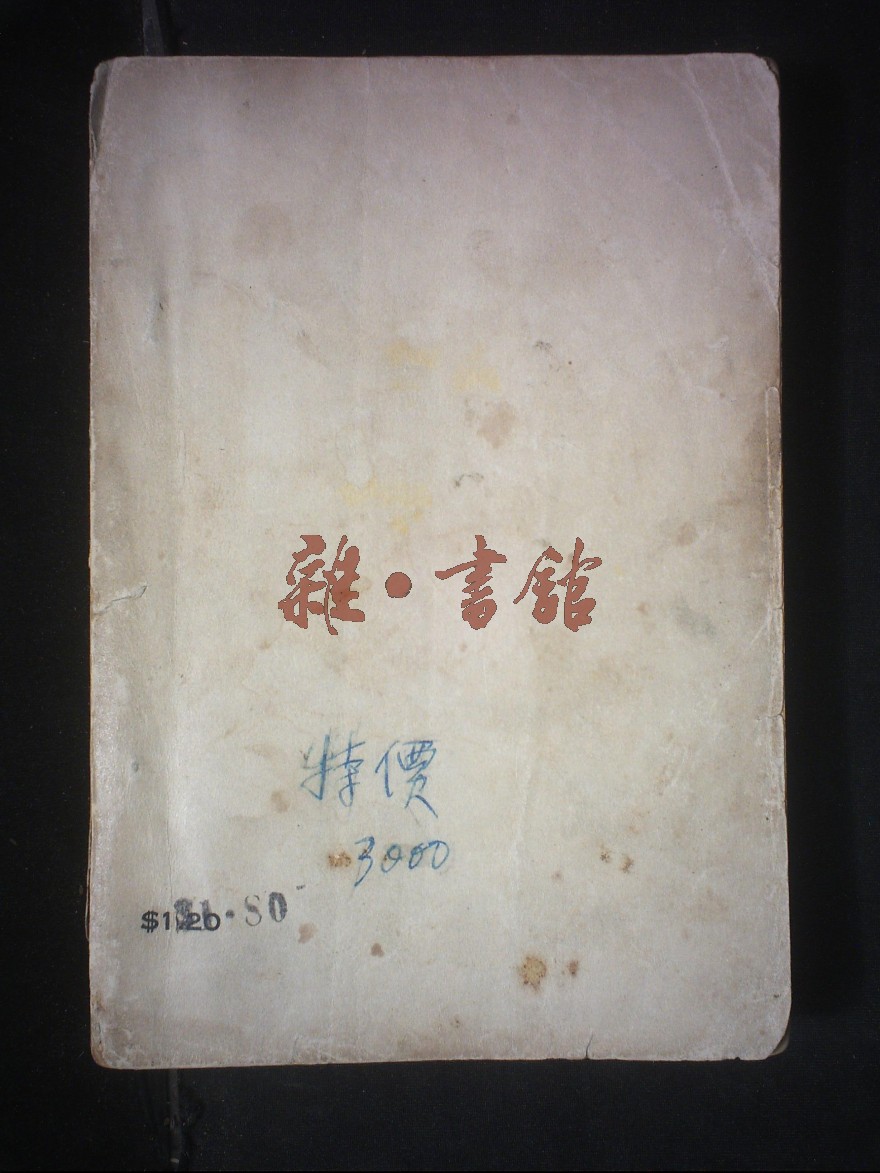 雜・書館
特價
3000
$1.20